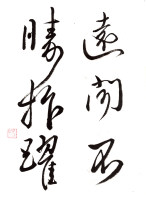 遠聞不
勝抃躍